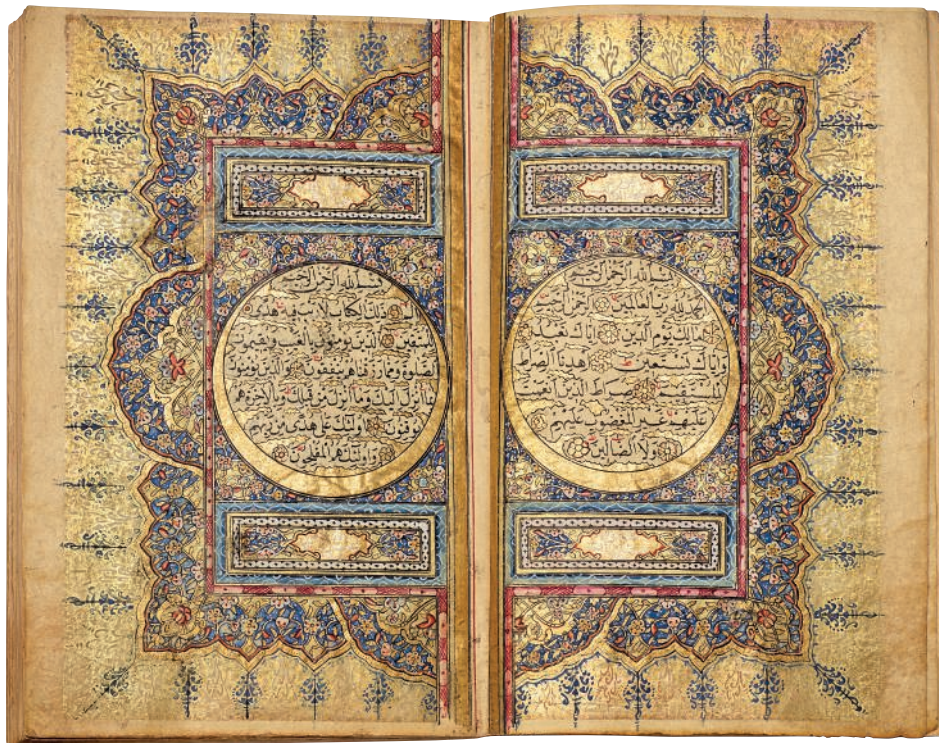 بسم الله الرحمن الرحيم
الحمد لله رب العالمين الرحمن الرحيم
مالك يوم الدين اياك نعبد
واياك نستعين اهدنا الصراط
المستقيم صراط الذين انعمت
عليهم غير المغضوب عليهم
ولا الضالين
بسم الله الرحمن الرحيم
الم ذلك الكتاب لا ريب فيه هدى
للمتقين الذين يؤمنون بالغيب ويقيمون
الصلوة ومما رزقناهم ينفقون والذين يؤمنون
بما انزل اليك وما انزل من قبلك وبالاخرة هم
يوقنون اولئك على هدى من ربهم
واولئك هم المفلحون